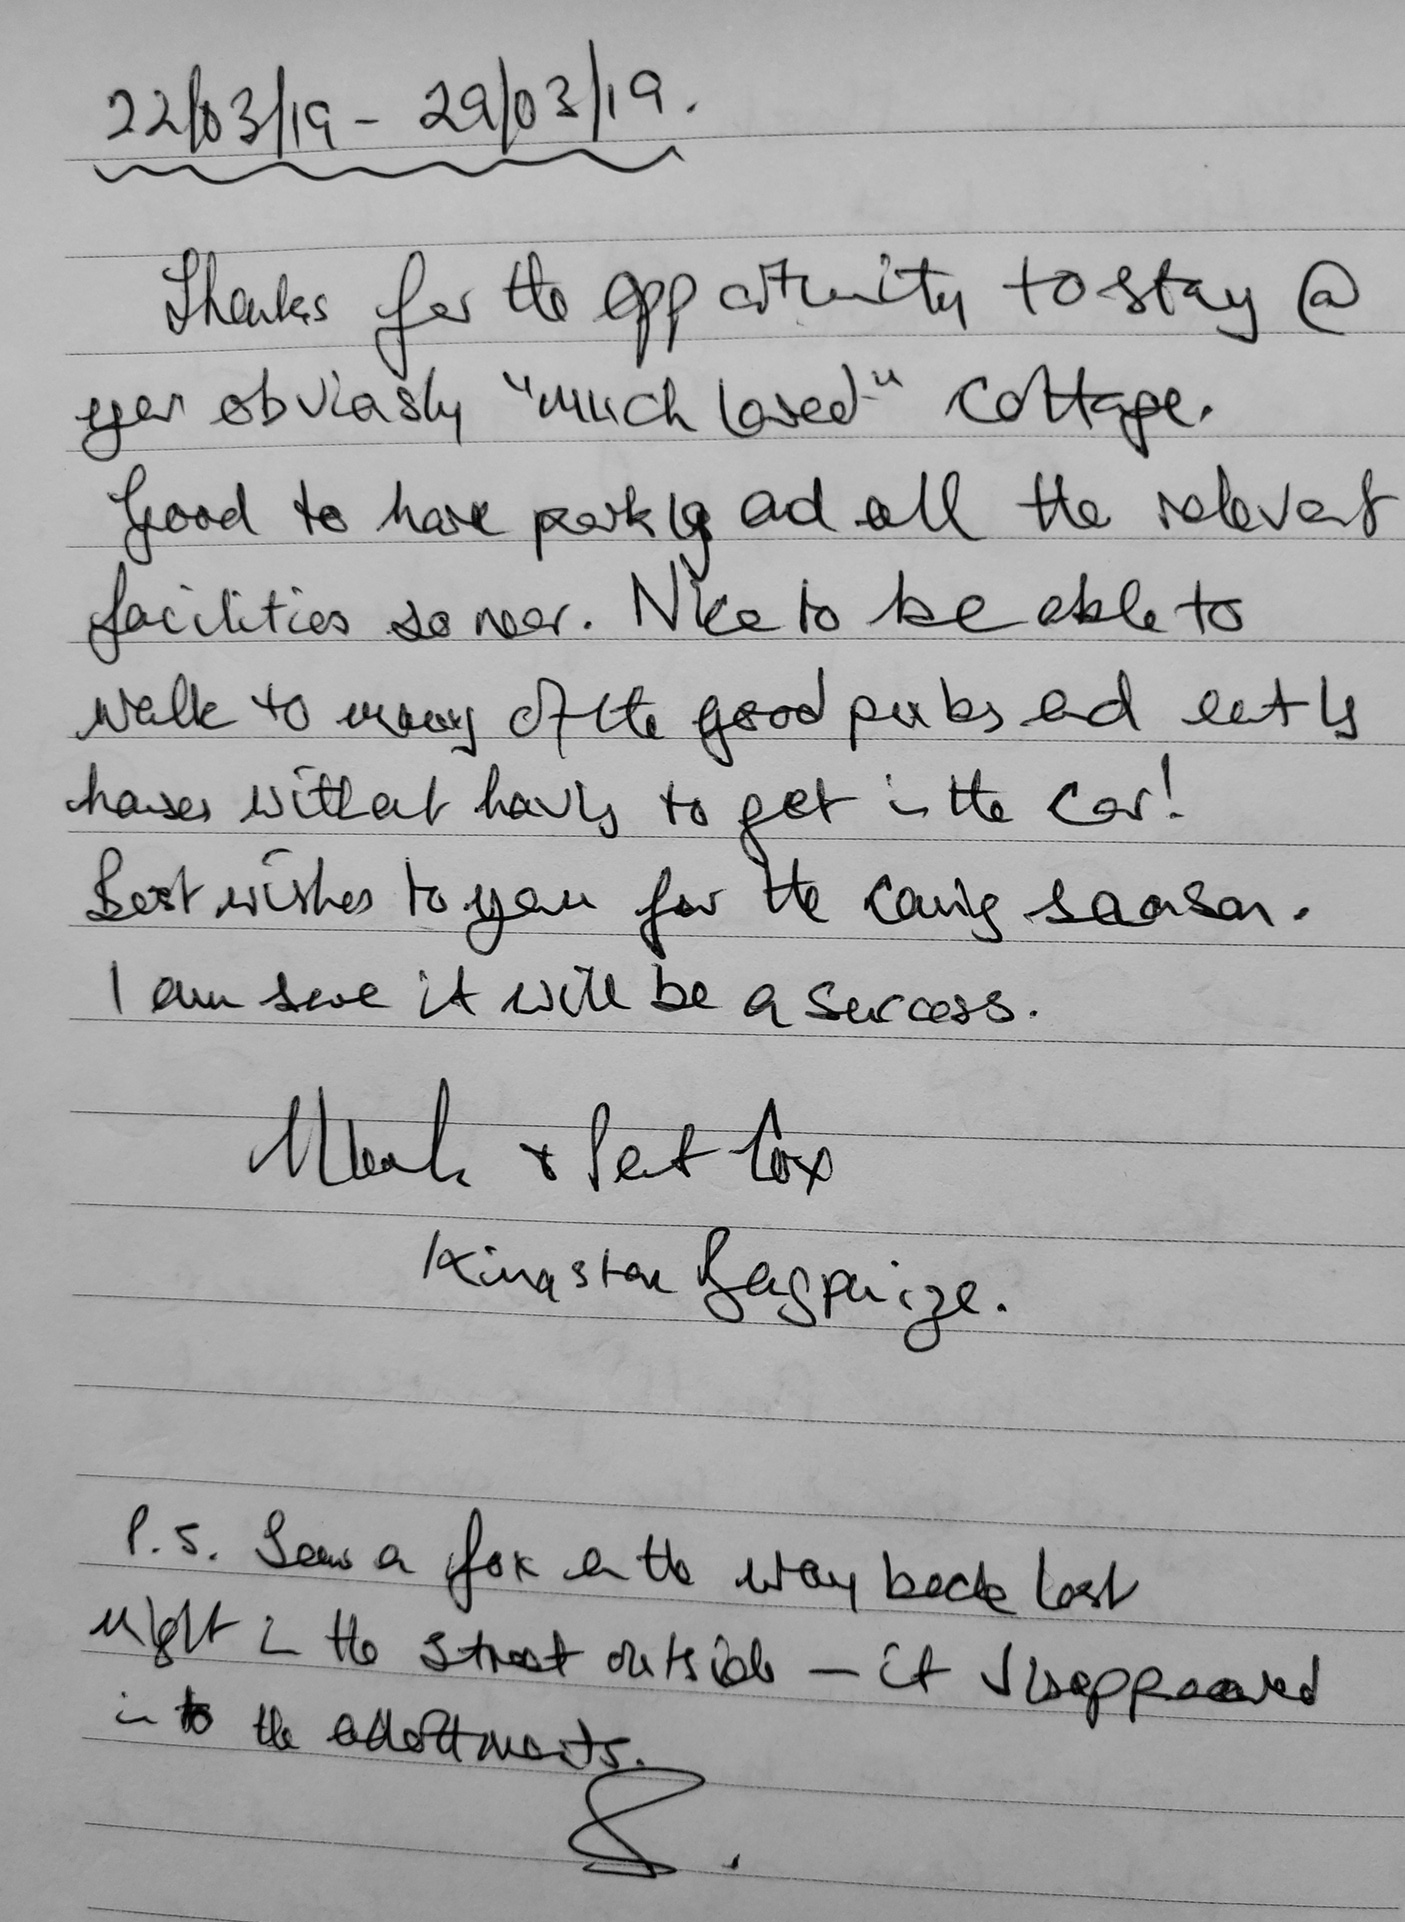 22/03/19 - 29/03/19.
Thanks for the opportunity to stay @
your obviously "much loved" cottage.
Good to have parking and all the relevant
facilities so near. Nice to be able to
walk to many of the good pubs and eating
houses without having to get in the car!
Best wishes to you for the coming season.
I am sure it will be a success.
Mark & Pat Cox
Kingston Bagpuize.
P.S. Saw a fox on the way back last
night in the street outside - it disappeared
into the allottments.